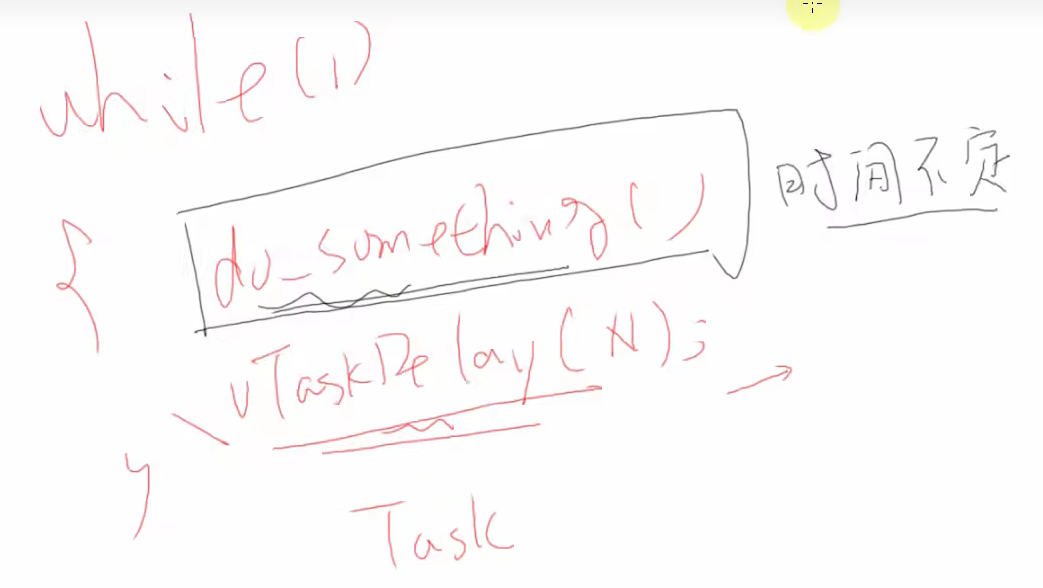 while(1)
{
do_something()
时间不定
vTaskDelay(N);
}
Task